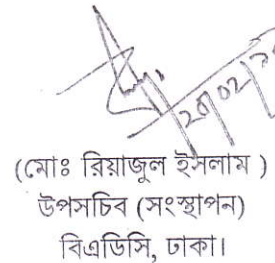 (মোঃ রিয়াজুল ইসলাম )
উপসচিব (সংস্থাপন)
বিএডিসি, ঢাকা।